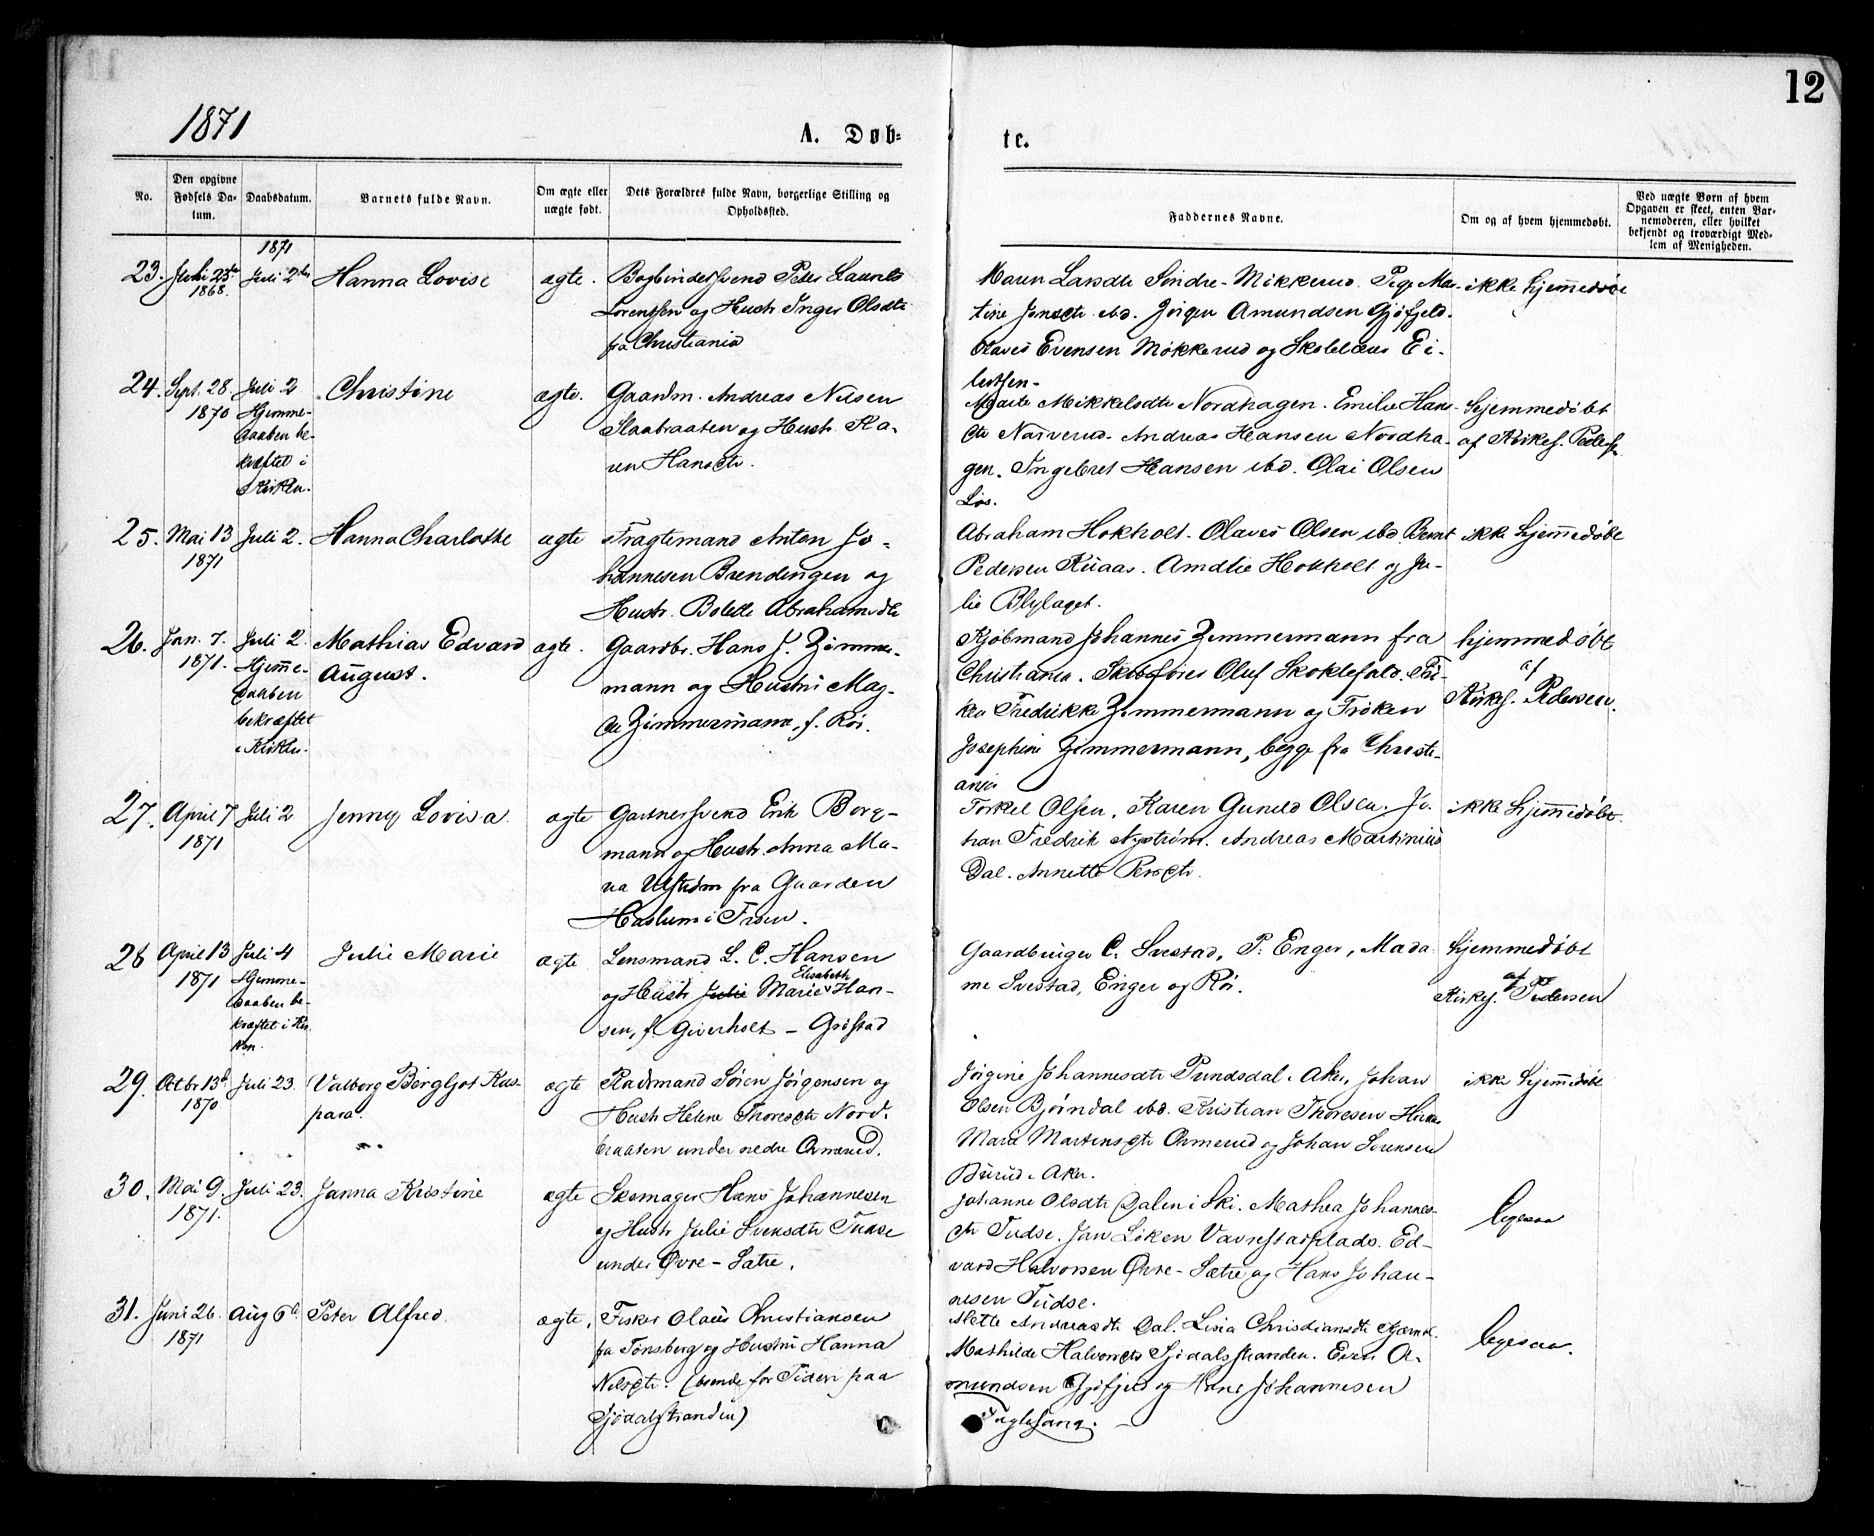 12
1871
A. Døb-
te.
No.
Den opgivne
Fødsels Da-
tum.
Daabsdatum.
Barnets fulde Navn.
Om ægte eller
uægte født.
Dets Forældres fulde Navn, borgerlige Stilling og
Opholdssted.
Faddernes Navne.
Om og af hvem hjemmedøbt.
Ved uægte Børn af hvem
Opgaven er skeet, enten Bar-
nemoderen, eller hvilket
bekjendt og troværdigt Med-
lem af Menigheden.
23.
1868.
1871
Juli 2den
Hanna Lovise
ægte.
Bogbindersvend Peder Laurits
Lorentsen og Hustr. Inger Olsdtr
fra Christiania
Maren Larsdtr Søndre-Mikkerud. Pige Mar-
tine Jensdtr. ibd. Jörgen Amundsen Gjöfjeld.
Olaves Evensen Mökkerud og Skolelærer Ei-
lertsen.
ikke hjemmedøbt
24.
Sept. 28.
1870
Juli 2
Hjemme-
daaben be-
kræftet i
Kirken.
Christine
ægte.
Gaardm. Andreas Nilsen
Slaabraaten og Hustr. Ka-
ren Hansdtr.
Marte Mikkelsdtr Nordhagen. Emilie Hans-
dtr Narverud. Andreas Hansen Nordha-
gen. Ingebret Hansen ibd. Olai Olsen
Lös.
hjemmedøbt
af Kirkes. Pedersen
25.
Mai 13
1871
Juli 2.
Hanna Charlothe
ægte
Fragtemand Anton Jo-
hannesen Brendengen og
Hustr. Bolette Abrahamsdtr
Abraham Hokholt. Olaves Olsen ibd. Bernt
Pedersen Ruaas. Amalie Hokholt og Ju-
lie Blylaget.
ikke hjemmedøbt
26.
Jan. 7.
1871.
Juli 2
Hjemme-
daaben
bekræftet
i Kirken.
Mathias Edvard
August.
ægte.
Gaardbr. Hans J. Zimmer-
mann og Hustru Mag-
da Zimmermann, f. Rör.
Kjöbmand Johannes Zimmermann fra
Christiania. Skibsförer Oluf Skoklefald. Frö-
ken Fredrikke Zimmermann og Fröken
Josephine Zimmermann, begge fra Christi-
ania
hjemmedøbt
af
Kirkes. Pedersen.
27.
April 7
1871
Juli 2
Jenny Lovisa
ægte
Gartnersvend Erik Borg-
mann og Hustr. Anna Ma-
ria fra Gaarden
Haslum i Froen.
Torkel Olsen, Karen Gunild Olsen. Jo-
han Fredrik Nyström. Andreas Martinius
Dal. Annette
ikke hjemmedøbt.
28
April 13
1871
Juli 4
Hjemme-
daaben be-
kræftet i Kir-
ken.
Julie Marie
ægte
Lensmand L. C. Hansen
og Hustr Julie Marie Elisabeth Han-
sen, f. Giverholt – Gröstad
Gaardbruger C. Svestad, P. Enger, Mada-
me Svestad, Enger og Rör.
hjemmedøbt
af
Kirkes. Pedersen
29.
Octbr 13de
1870
Juli 23
Valborg Bergljot Kas-
para.
ægte
Raadmand Sören Jörgensen og
Hustr Helene Thoresdtr Nord-
braaten under nedre Ormerud.
Jörgine Johannesdtr Pundsdal i Aker, Johan
Olsen Björndal ibd. Kristian Thoresen
Marie Martinsdtr Ormerud og Johan Sörensen
i Aker.
ikke hjemmedøbt
30.
Mai 9.
1871.
Juli 23.
Janna Kristine
ægte
Skomager Hans Johannesen
og Hustr Julie Svensdtr Tudse
under Övre-Sætre.
Johanne Olsdtr Dalen i Ski. Mathea Johannes-
dtr Tudse. Jan Löken Edvard
Halvorsen Övre-Sætre og Hans Johan-
nesen Tudse.
ligesaa
31.
Juni 26.
1871
Aug 6te
Peter Alfred
ægte.
Fisker Olaus Christiansen
fra Tönsberg og Hustru Hanna
Nilsdtr. (boende for Tiden paa
Sjödalsstranden)
Mette Andreasdtr Dal. Lisia Christiansdtr
Mathilde Halvorsdtr Sjödalsstranden. Even A-
mundsen Gjöfjeld og Hans Johannesen
Fuglesang.
ligesaa.